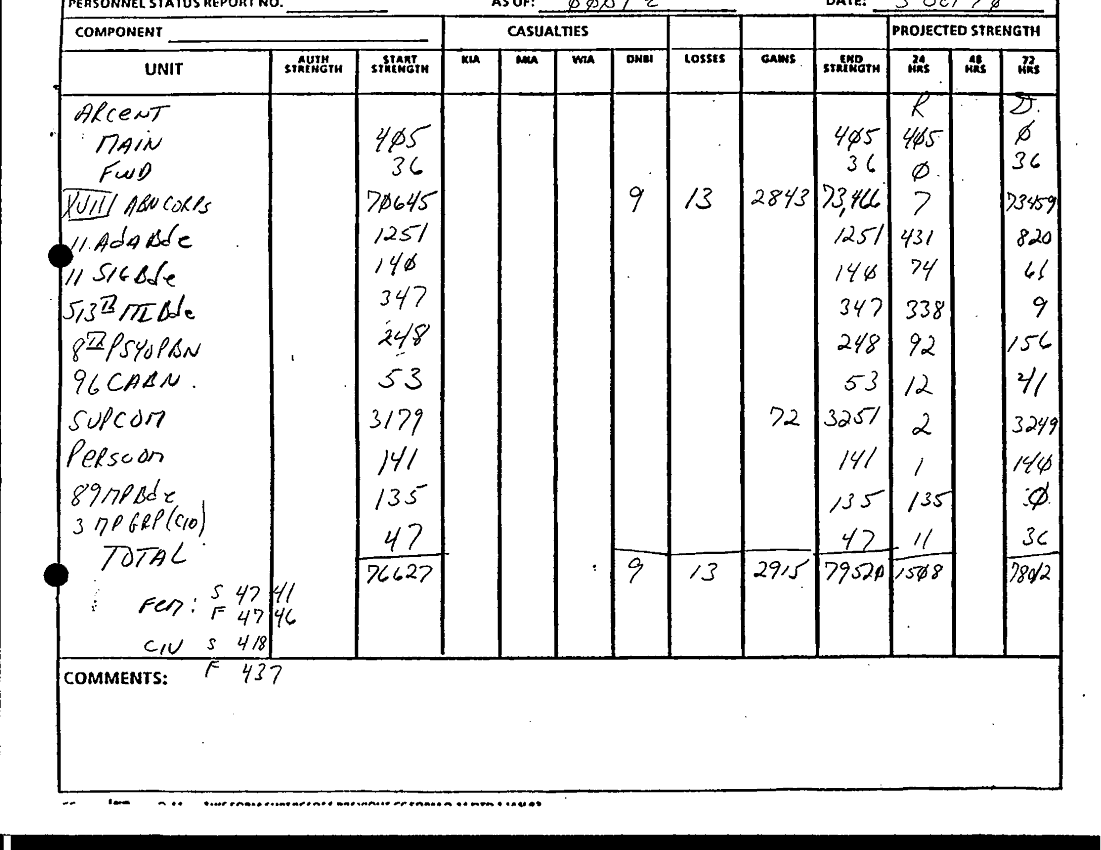 PERSONNEL STATUS REPORT NO. AS OF: DATE:
COMPONENT CASUALTIES PROJECTED STRENGTH
UNIT AUTH STRENGTH START STRENGTH KIA MIA WIA DNBI LOSSES GAINS END STRENGTH 24 HRS 48 HRS 72 HRS
ARCENT R D
MAIN 4Ø5 4Ø5 4Ø5 Ø
FWD 36 36 Ø 36
XVIII ABN CORPS 7Ø645 9 13 2843 73,466 7 73459
11 AdA Bde 1251 1251 431 820
11 SIG Bde 14Ø 14Ø 74 61
513th MI Bde 347 347 338 9
8th PSYOP BN 248 248 92 156
96 CABN. 53 53 12 41
SUPCOM 3179 72 3251 2 3249
PERSCOM 141 141 1 14Ø
89 MP Bde 135 135 135 Ø
3 MP GRP (CID) 47 47 11 36
TOTAL 76627 9 13 2915 7952Ø 15Ø8 78Ø12
Fem: S 47 41
F 47 46
CIV S 418
F 437
COMMENTS: